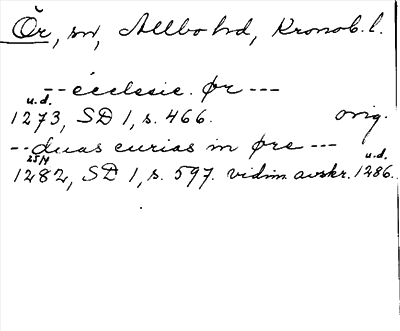 Ör, sn, Allbo hd, Kronob. l.
-- ecclesie. ør ---
u.d.
1273, SD 1, s. 466. orig.
-- duas curias in øre ---
25/4 u.d.
1282, SD 1, s. 597. vidim. avskr. 1286.